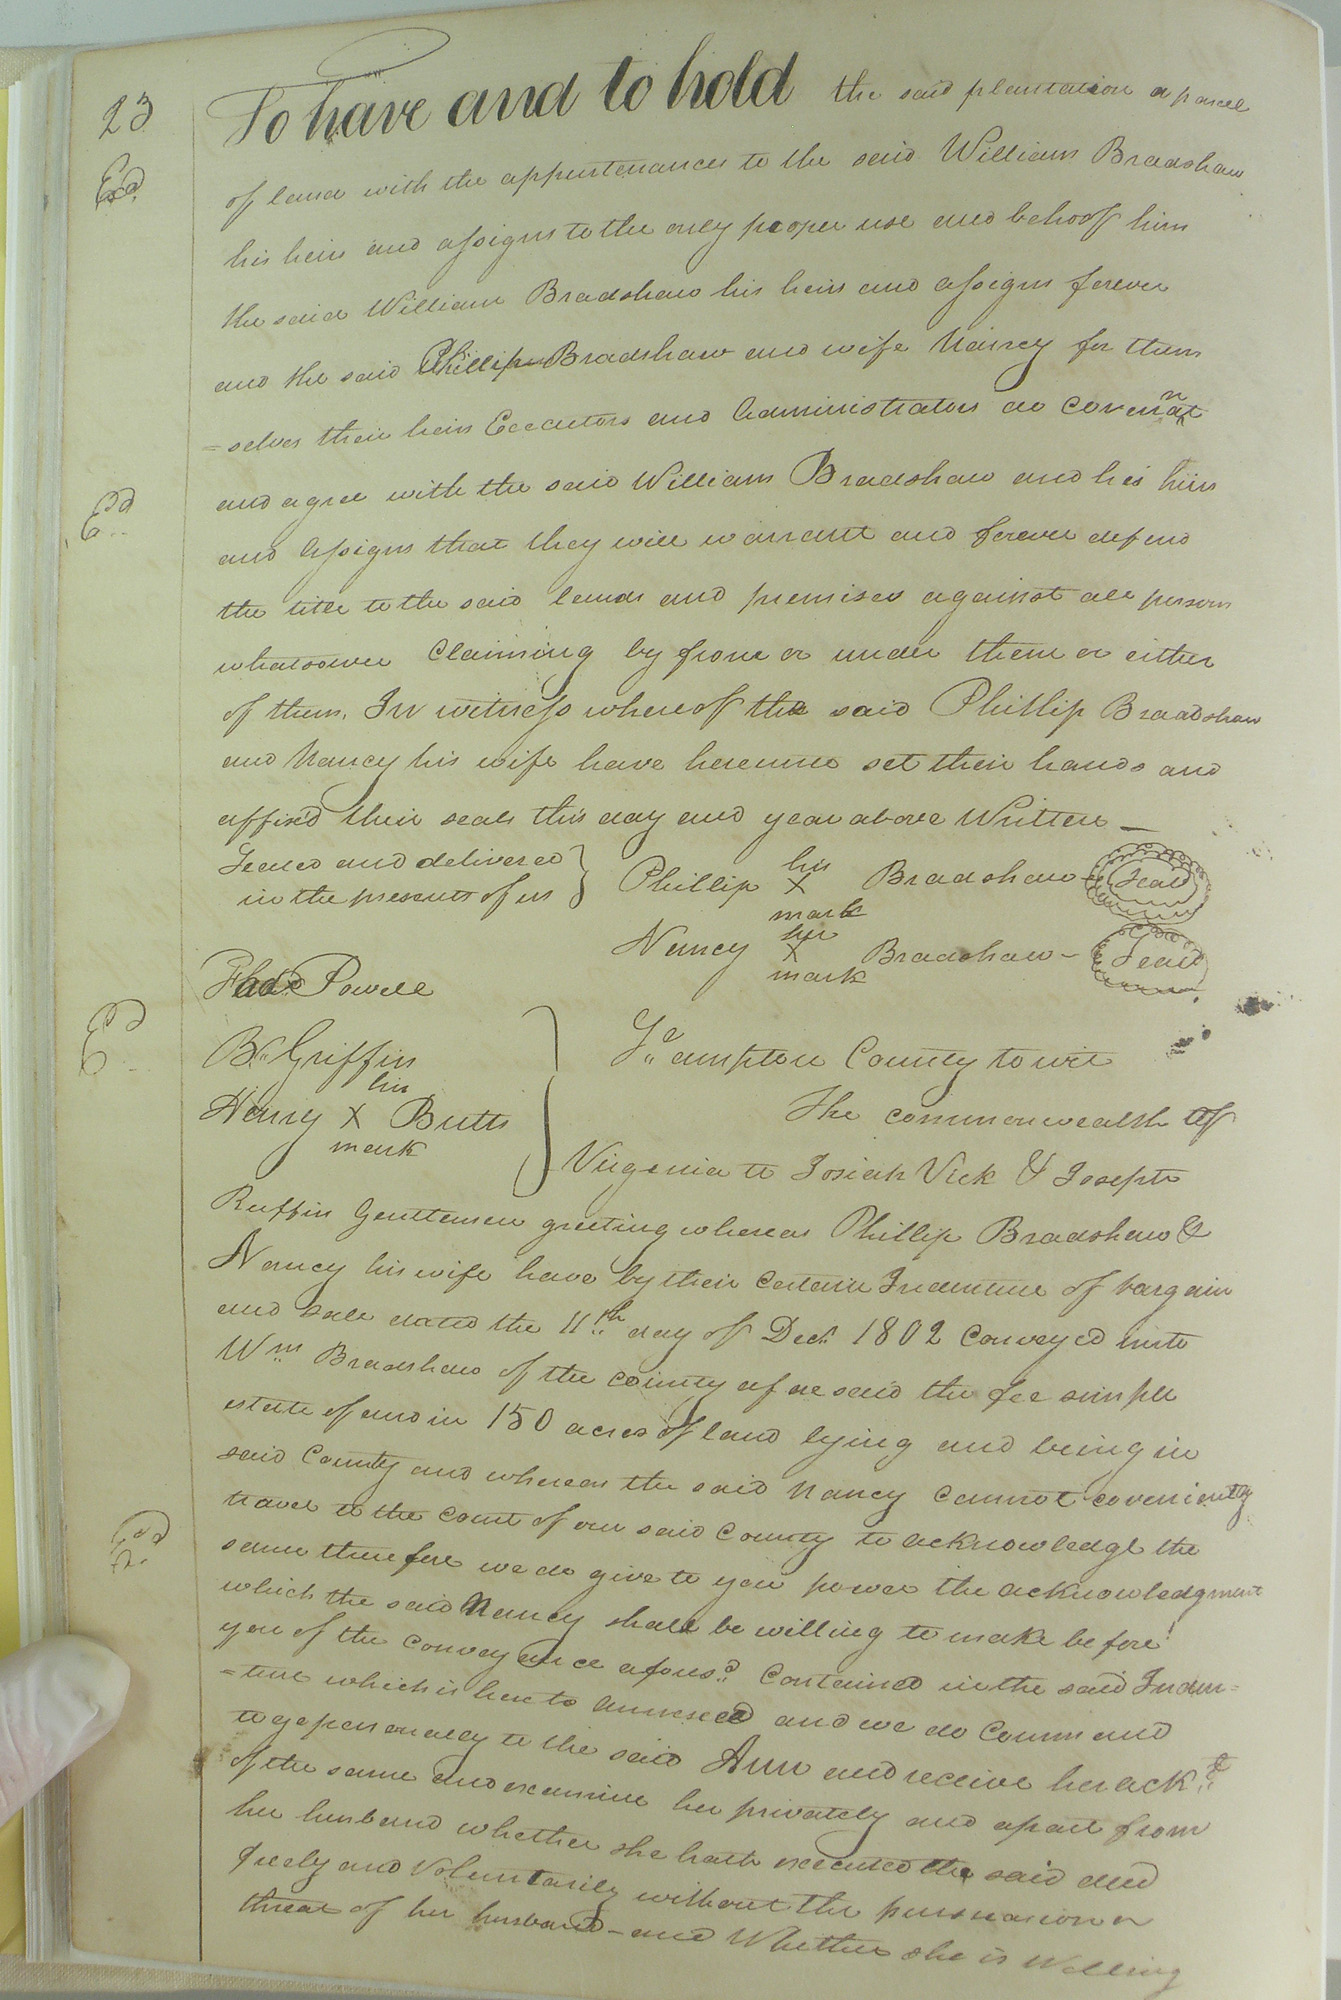 23
To have and to hold the said plantation or parcel
Exd
of land with the appurtenances to the said William Bradshaw
his heirs and assigns to the only proper use and behooff him
the said William Bradshaw his heirs and assigns forever
and the said Phillip Bradshaw and wife Nancy for them
=selves their heirs Executors and Administrators do covenant
Exd
and agree with the said William Bradshaw and his heirs
and assigns that they will warrant and forever defend
the title to the said lands and premises against all persons
whatsoever claiming by from or under them or either
of them. In witness whereoff the said Phillip Bradshaw
and Nancy his wife have hereunto set their hands and
affixd their seals this day and year above Written
Sealed and delivered
in the presents of us
Phillip his X mark Bradshaw Seal
Nancy her X mark Bradshaw Seal
Powell
Exd
B. Griffin
Henry his X mark Butts
So ampton County to wit
The commonwealth off
Virginia to Josiah Vick & Joseph
Ruffin Gentlemen greeting whereas Phillip Bradshaw &
Nancy his wife have by their certain Indenture of bargain
and sale dated the 11th day of Decr. 1802 Conveyed unto
Wm Bradshaw of the county aforesaid the fee simple
estate of and in 150 acres of land lying and being in
said County and whereas the said Nancy cannot coveniently
travel to the court of our said County to acknowledge the
Exd
same therefore we do give to you power the acknowledgment
which the said Nancy shall be willing to make before
you of the conveyance aforesd. Contained in the said Inden=
=ture which is hereto annexed and we do Command
to go personally to the said Ann and receive her ackd.
of the same and examine her privately and apart from
her husband whether she hath executed the said deed
freely and Voluntarily without the persuasion or
threat of her husband - and Whether she is Willing